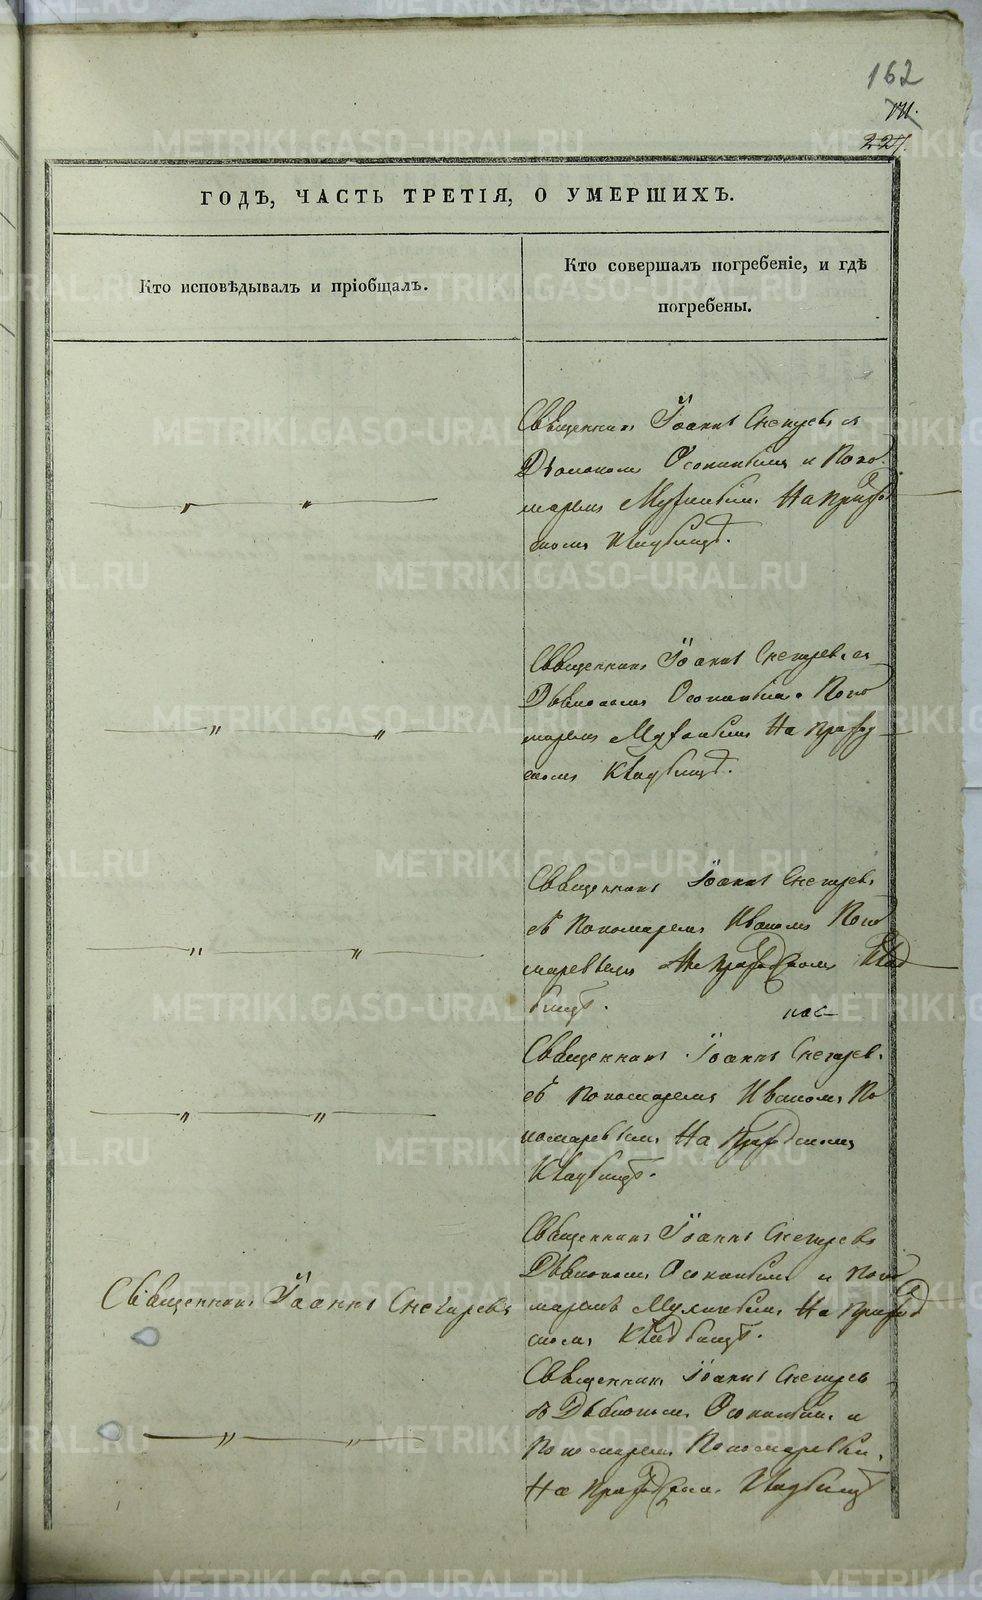 162
171.
227.
ГОДЪ, ЧАСТЬ ТРЕТІЯ, О УМЕРШИХЪ.
Кто исповѣдывалъ и пріобщалъ.
Кто совершалъ погребеніе, и гдѣ
погребены.
Священникъ Іоаннъ Снегирев съ
Діакономъ Осокинымъ и Поно
маремъ На приход
скомъ Кладбищѣ.
Священникъ Іоаннъ Снегирев съ
Діакономъ Осокинымъ и Поно
маремъ На приход
скомъ Кладбищѣ.
Священникъ Іоаннъ Снегирев
съ Пономаремъ Иваномъ Поно
маревымъ На приходскомъ Клад
бищѣ.
Священникъ Іоаннъ Снегирев
съ Пономаремъ Иваномъ По
номаревымъ На приходскомъ
Кладбищѣ.
Священникъ Іоаннъ Снегиревъ
Священникъ Іоаннъ Снегиревъ
Діакономъ Осокинымъ и Поно
маремъ На приход
скомъ Кладбищѣ.
Священникъ Іоаннъ Снегирев
съ Діакономъ Осокинымъ и
Пономаремъ Пономаревым.
На приходскомъ Кладбищѣ
METRIKI.GASO-URAL.RU